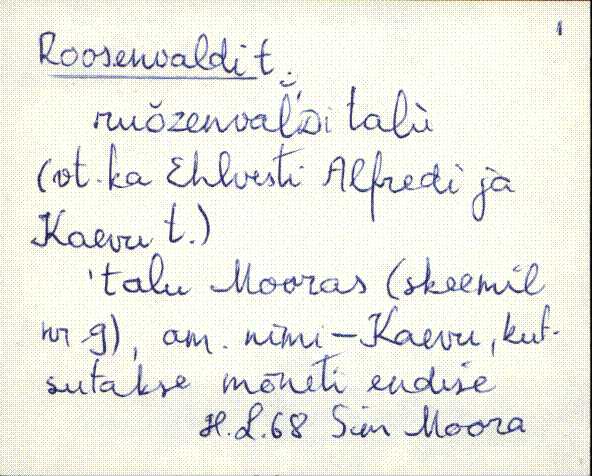 1
Roosenvaldi t.
ruŏzenval̆di talù
(vt. ka Ehlvesti Alfredi ja
Kaevu t.)
'talu Mooras (skeemil
nr 9), am. nimi – Kaevu, kut-
sutakse mõneti endise
H. L. 68 Sim Moora